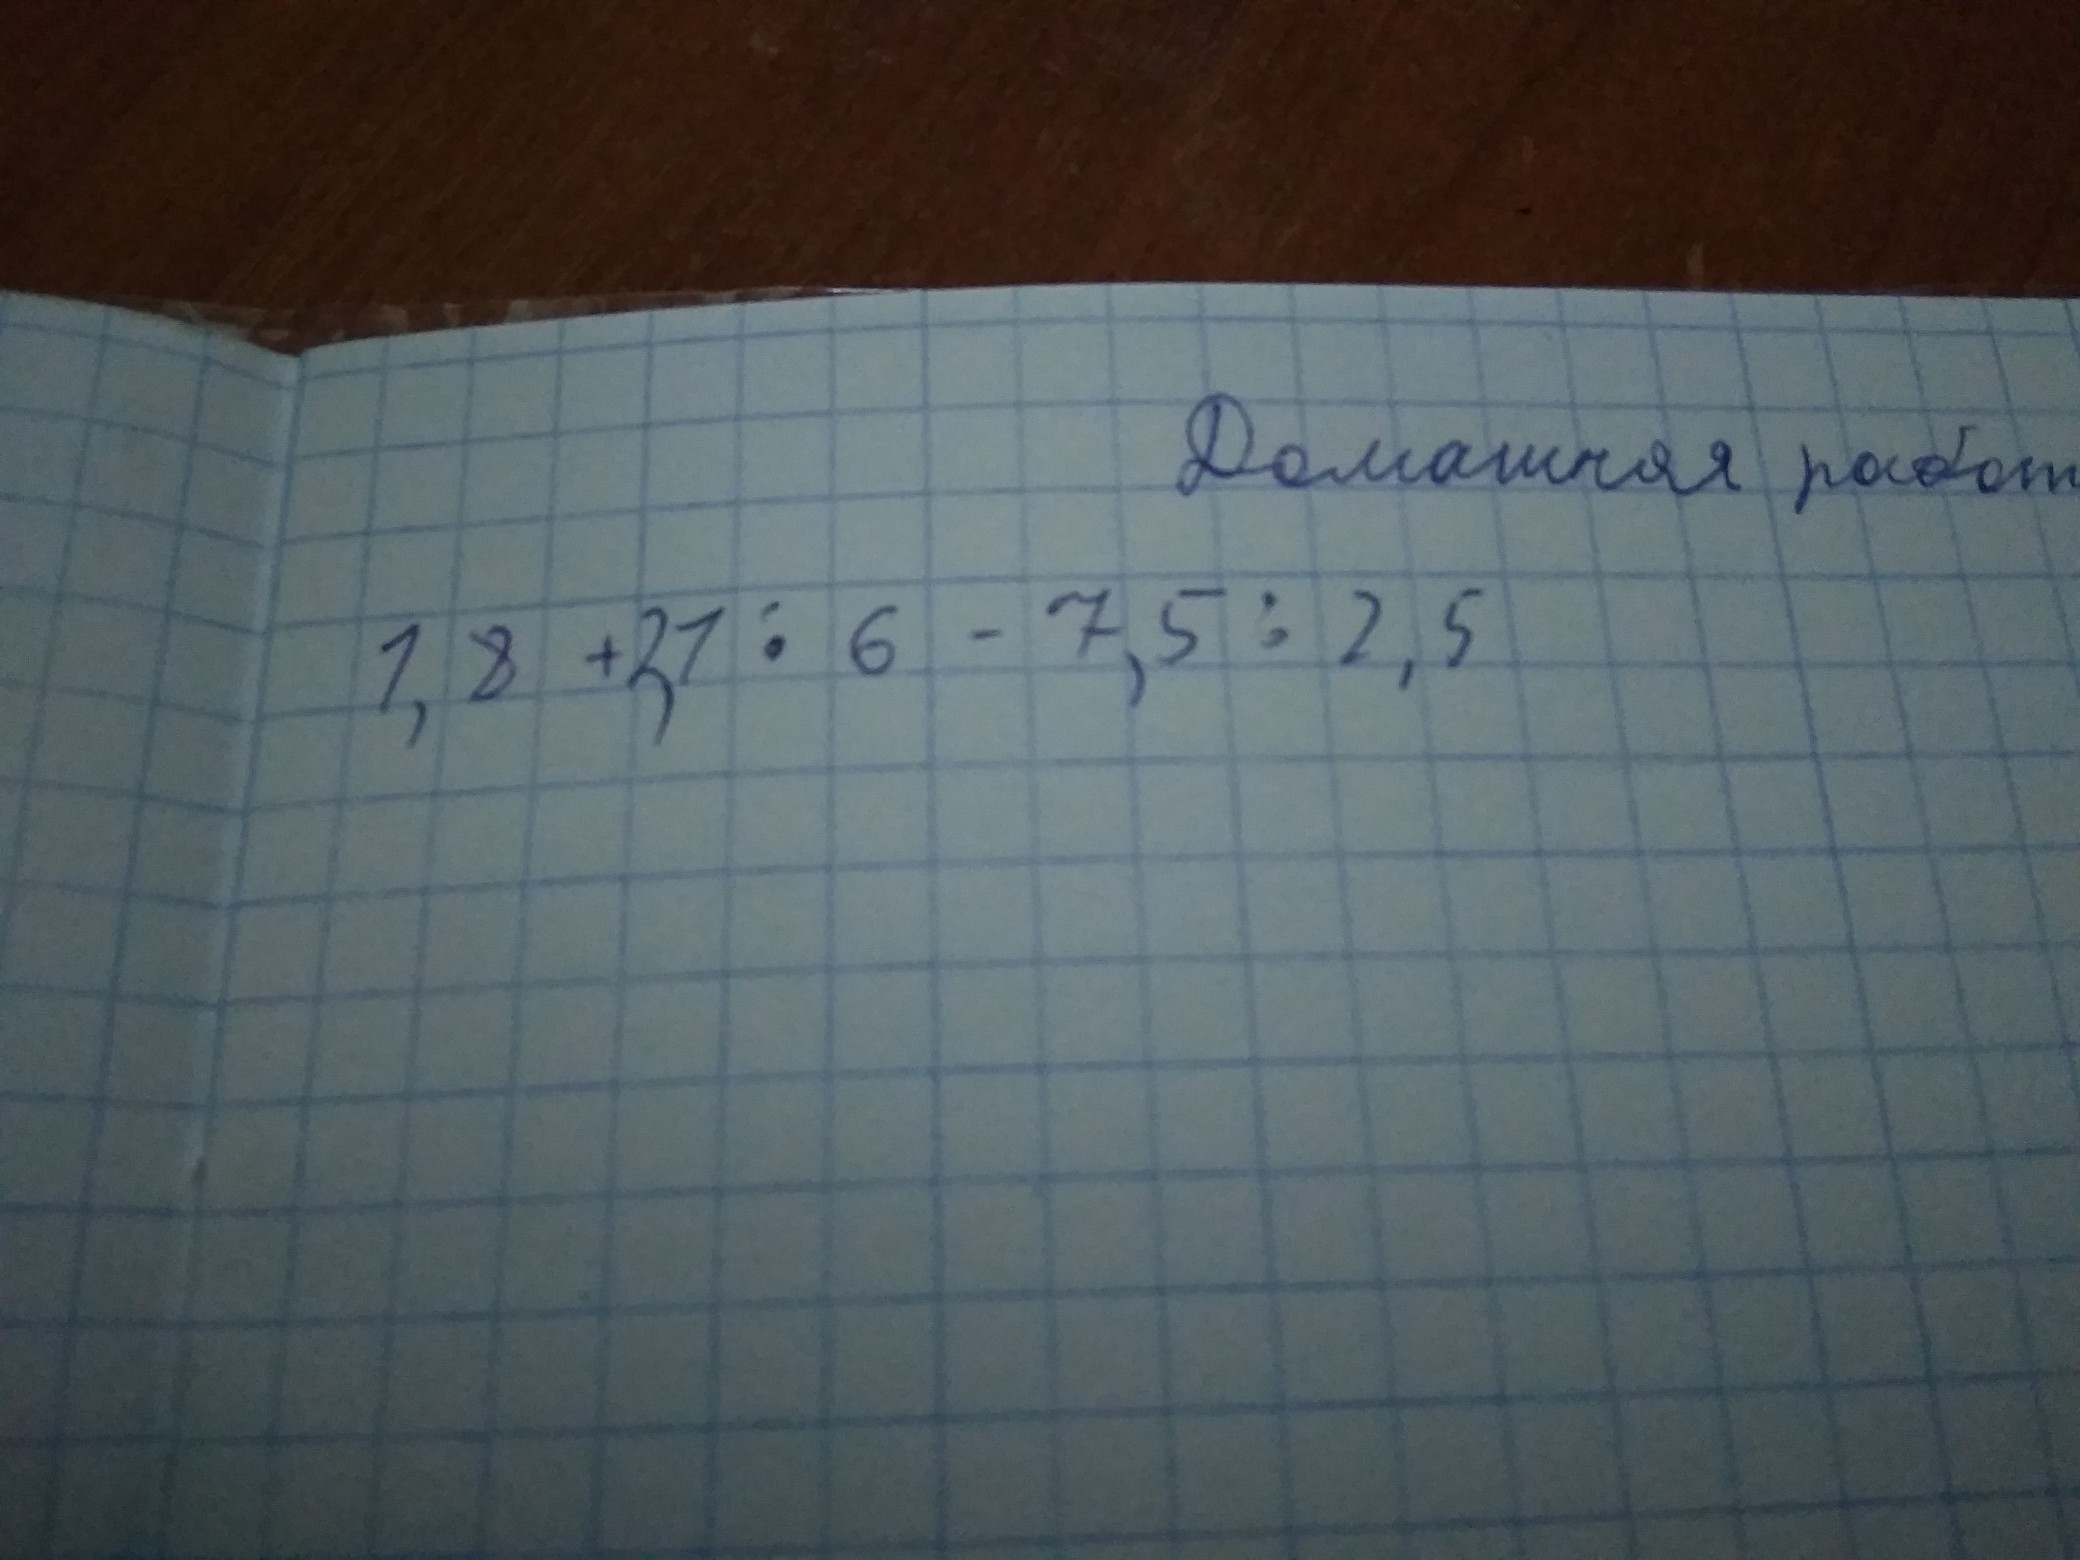 Домашняя работ
1,8 + 2,1 : 6 - 7,5 : 2,5